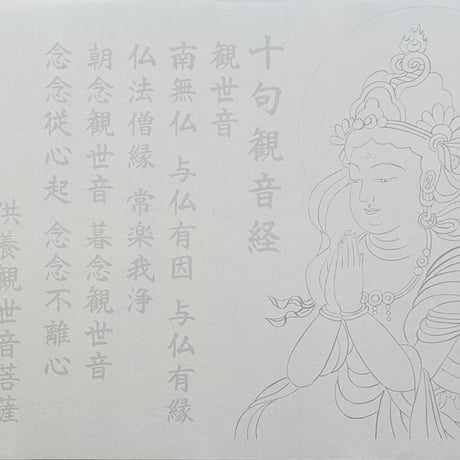 十句観音経
観世音
南無仏 与仏有因 与仏有縁
仏法僧縁 常楽我浄
朝念観世音 暮念観世音
念念従心起 念念不離心
洪養観世音菩薩